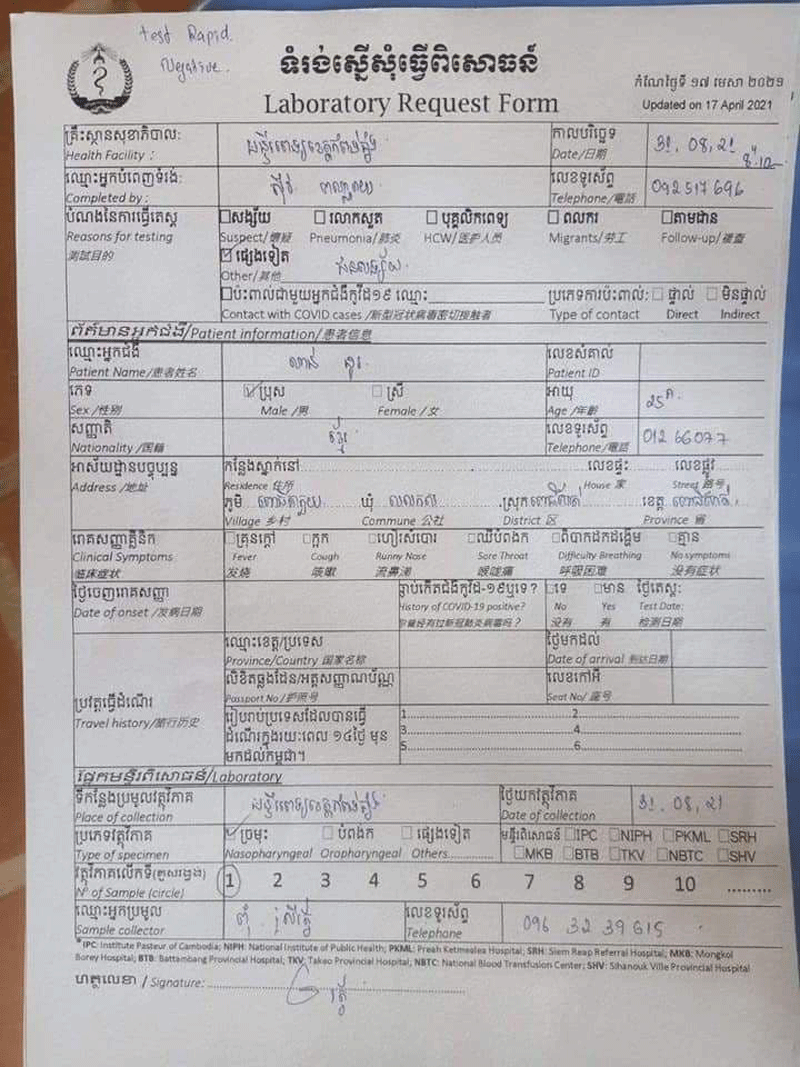 test Rapid
Negative.
ទំរង់ស្នើសុំធ្វើពិសោធន៍
Laboratory Request Form
កំណែថ្ងៃទី ១៧ មេសា ២០២១
Updated on 17 April 2021
គ្រឹះស្ថានសុខាភិបាល:
Health Facility :
កាលបរិច្ឆេទ
Date/日期
31. 08, 21
ឈ្មោះអ្នកបំពេញទំរង់:
Completed by :
លេខទូរស័ព្ទ
Telephone/電話
092 517 696
បំណងនៃការធ្វើតេស្ត
Reasons for testing
測試目的
☐សង្ស័យ ☐ រលាកសួត ☐ បុគ្គលិកពេទ្យ ☐ ពលករ ☐តាមដាន
Suspect/懷疑 Pneumonia/肺炎 HCW/医护人员 Migrants/劳工 Follow-up/複查
☑ ផ្សេងទៀត
Other/其他
☐ប៉ះពាល់ជាមួយអ្នកជំងឺកូវីដ១៩ ឈ្មោះ ប្រភេទការប៉ះពាល់: ☐ ផ្ទាល់ ☐ មិនផ្ទាល់
Contact with COVID cases /新型冠状病毒密切接触者 Type of contact Direct Indirect
ព័ត៌មានអ្នកជំងឺ/Patient information/患者信息
ឈ្មោះអ្នកជំងឺ
Patient Name/患者姓名
លេខសំគាល់
Patient ID
ភេទ
Sex /性别
☑ប្រុស ☐ ស្រី
Male /男 Female / 女
អាយុ
Age /年齡
25
សញ្ជាតិ
Nationality /国籍
ខ្មែរ
លេខទូរស័ព្ទ
Telephone/電話
012 66077
អាស័យដ្ឋានបច្ចុប្បន្ន
Address /地址
កន្លែងស្នាក់នៅ លេខផ្ទះ លេខផ្លូវ
Residence 住所 House 家 Street 路号
ភូមិ ឃុំ ស្រុក ខេត្ត
Village 乡村 Commune 公社 District 区 Province 省
រោគសញ្ញាគ្លីនិក
Clinical Symptoms
临床症状
☐គ្រុនក្តៅ ☐ក្អក ☐ហៀរសំបោរ ☐ឈឺបំពង់ក ☐ពិបាកដកដង្ហើម ☐គ្មាន
Fever Cough Runny Nose Sore Throat Difficulty Breathing No symptoms
发烧 咳嗽 流鼻涕 喉咙痛 呼吸困难 没有症状
ថ្ងៃចេញរោគសញ្ញា
Date of onset /发病日期
ធ្លាប់កើតជំងឺកូវីដ-១៩ឬទេ? ☐ទេ ☐មាន ថ្ងៃតេស្ត:
History of COVID-19 positive? No Yes Test Date:
没有 有 检测日期
ប្រវត្តធ្វើដំណើរ
Travel history/旅行历史
ឈ្មោះខេត្ត/ប្រទេស
Province/Country 国家名称
ថ្ងៃមកដល់
Date of arrival 到达日期
លិខិតឆ្លងដែន/អត្តសញ្ញាណប័ណ្ណ
Passport No /护照号
លេខកៅអី
Seat No/ 座号
រៀបរាប់ប្រទេសដែលបានធ្វើ
ដំណើរក្នុងរយៈពេល ១៤ថ្ងៃ មុន
មកដល់កម្ពុជា។
1 2
3 4
5 6
ផ្នែកមន្ទីរពិសោធន៍/Laboratory
ទីកន្លែងប្រមូលវត្ថុវិភាគ
Place of collection
ថ្ងៃយកវត្ថុវិភាគ
Date of collection
31. 08, 21
ប្រភេទវត្ថុវិភាគ
Type of specimen
☑ច្រមុះ ☐ បំពង់ក ☐ ផ្សេងទៀត
Nasopharyngeal Oropharyngeal Others
មន្ទីរពិសោធន៍ ☐IPC ☐NIPH ☐PKML ☐SRH
☐MKB ☐BTB ☐TKV ☐NBTC ☐SHV
វត្ថុវិភាគលើកទី(គូសរង្វង់)
N° of Sample (circle)
1 2 3 4 5 6 7 8 9 10
ឈ្មោះអ្នកប្រមូល
Sample collector
លេខទូរស័ព្ទ
Telephone
096 32 39 615
* IPC: Institute Pasteur of Cambodia; NIPH: National Institute of Public Health; PKML: Preah Ketmealea Hospital; SRH: Siem Reap Referral Hospital; MKB: Mongkol
Borey Hospital; BTB: Battambang Provincial Hospital; TKV: Takeo Provincial Hospital; NBTC: National Blood Transfusion Center; SHV: Sihanouk Ville Provincial Hospital
ហត្ថលេខា / Signature: